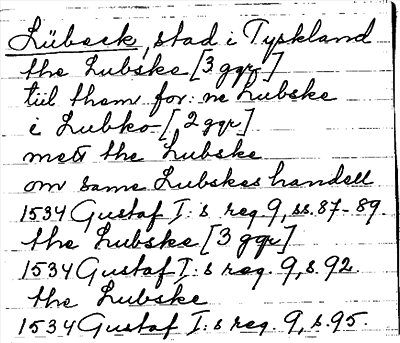 Lübeck, stad i Tyskland
the Lubske [3 ggr]
till them for:ne Lubske
i Lubko [, 2 ggr]
mett the Lubske
om same Lubskes handell
1534 Gustaf I:s reg. 9, ss. 87-89.
the Lubske [3 ggr]
1534 Gustaf I:s reg. 9, s. 92.
the Lubske
1534 Gustaf I:s reg. 9, s. 95.